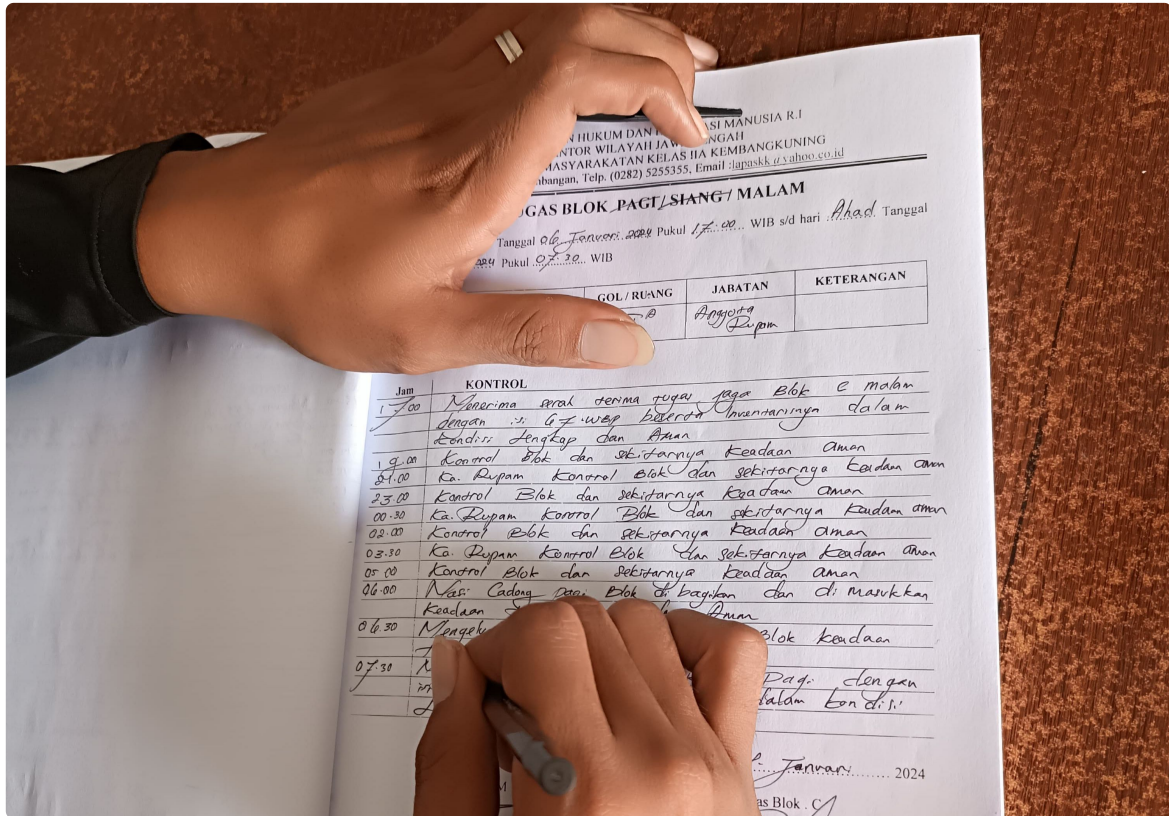 HUKUM DAN ASI MANUSIA R.I
NTOR WILAYAH JAW NGAH
MASYARAKATAN KELAS IIA KEMBANGKUNING
mbangan, Telp. (0282) 5255355, Email :lapaskk@yahoo.co.id
UGAS BLOK PAGI / SIANG / MALAM
Tanggal 06 Januari 2024 Pukul 17.00 WIB s/d hari Ahad Tanggal
Pukul 07.30 WIB
GOL / RUANG JABATAN KETERANGAN
Anggota
Rupam
Jam KONTROL
17.00 Menerima serah terima tugas jaga Blok E malam
dengan isi 67 WBP beserta Inventarisnya dalam
Kondisi Lengkap dan Aman
19.00 Kontrol Blok dan sekitarnya Keadaan aman
21.00 Ka. Rupam Kontrol Blok dan sekitarnya Keadaan aman
23.00 Kontrol Blok dan sekitarnya Keadaan aman
00.30 Ka. Rupam Kontrol Blok dan sekitarnya Keadaan aman
02.00 Kontrol Blok dan sekitarnya Keadaan aman
03.30 Ka. Rupam Kontrol Blok dan sekitarnya Keadaan aman
05.00 Kontrol Blok dan sekitarnya Keadaan aman
06.00 Nasi Cadong pagi Blok di bagikan dan di masukkan
Keadaan Aman
06.30 Mengelu Blok keadaan
07.30 Pagi dengan
dalam kondisi
Januari 2024
as Blok .